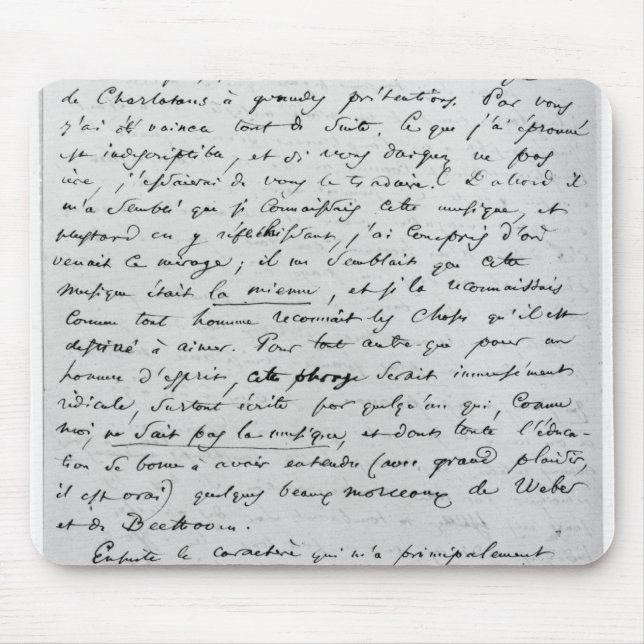 de Charlatans à grandes prétentions. Par vous
j'ai été vaincu tout de suite. Ce que j'ai éprouvé
est indescriptible, et si vous daignez ne pas
rire, j'essaierai de vous le traduire. D'abord il
m'a semblé que je connaissais cette musique, et
plus tard en y réfléchissant, j'ai compris d'où
venait ce mirage; il me semblait que cette
musique était la mienne, et je la reconnaissais
comme tout homme reconnaît les choses qu'il est
destiné à aimer. Pour tout autre que pour un
homme d'esprit, cette phrase serait immensément
ridicule, surtout écrite par quelqu'un qui, comme
moi, ne sait pas la musique, et dont toute l'éduca-
tion se borne à avoir entendu (avec grand plaisir,
il est vrai) quelques beaux morceaux de Weber
et de Beethoven.
Ensuite le caractère qui m'a principalement